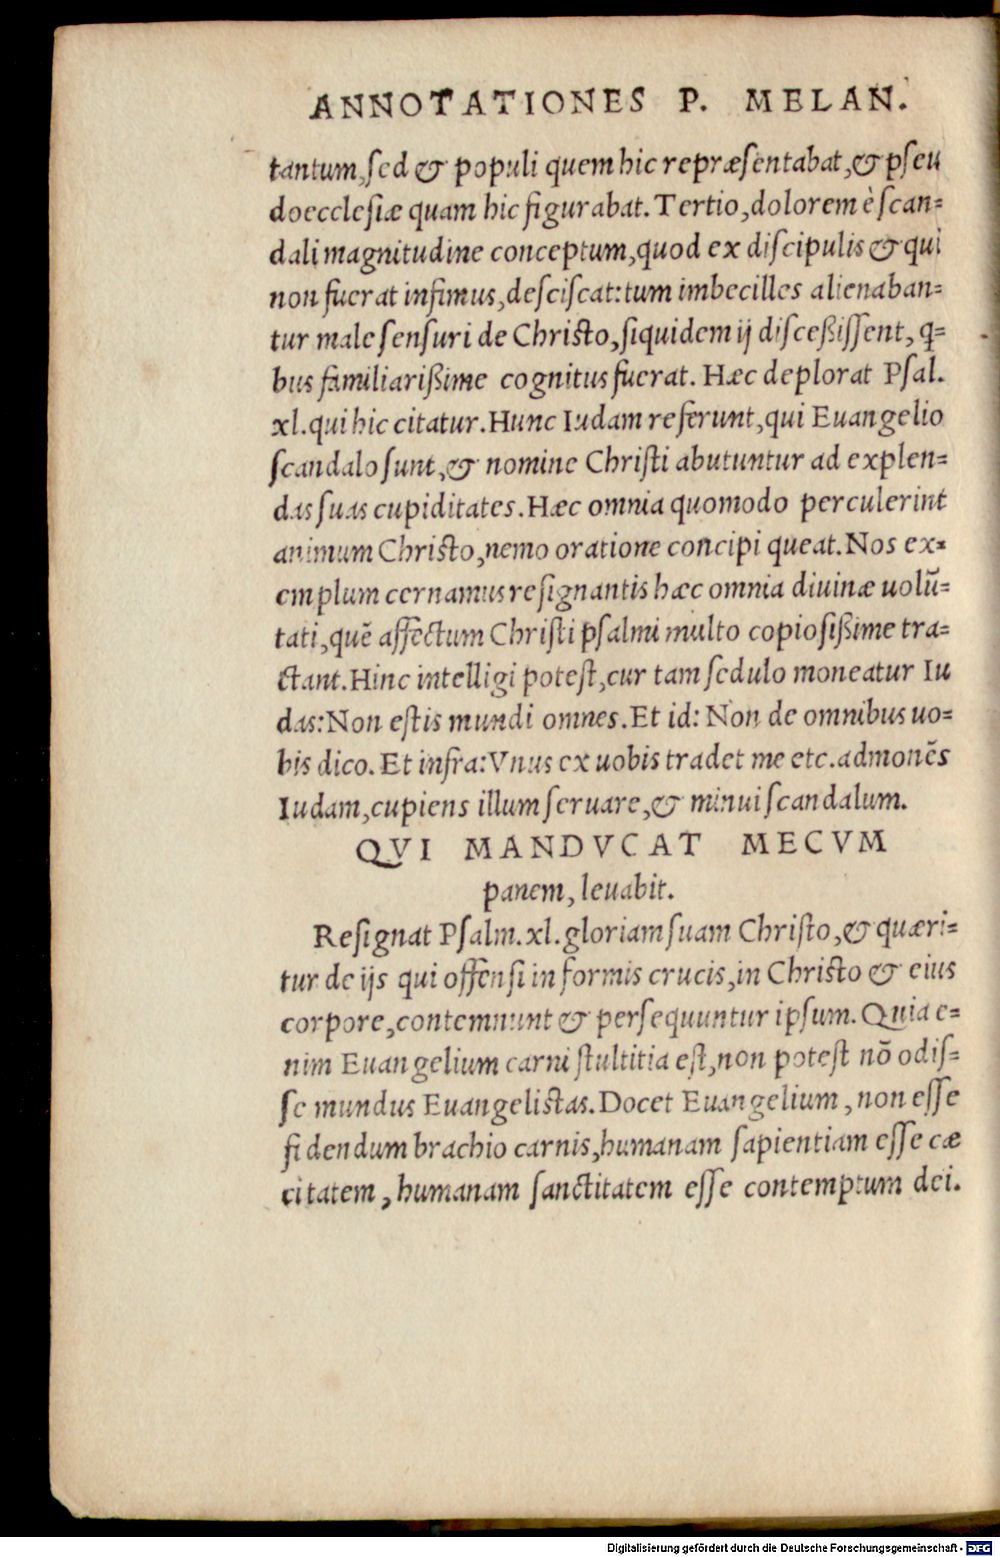 ANNOTATIONES P. MELAN.
tantum, sed & populi quem hic repræsentabat, & pseu
doecclesiæ quam hic figurabat. Tertio, dolorem è scan=
dali magnitudine conceptum, quod ex discipulis & qui
non fuerat infimus, desciscat: tum imbecilles alienaban=
tur male sensuri de Christo, siquidem ij disceßissent, q=
bus familiarißime cognitus fuerat. Hæc deplorat Psal.
xl. qui hic citatur. Hunc Iudam referunt, qui Euangelio
scandalo sunt, & nomine Christi abutuntur ad explen=
das suas cupiditates. Hæc omnia quomodo perculerint
animum Christo, nemo oratione concipi queat. Nos ex=
emplum cernamus resignantis hæc omnia diuinæ uolū=
tati, quē affectum Christi psalmi multo copiosißime tra=
ctant. Hinc intelligi potest, cur tam sedulo moneatur Iu
das: Non estis mundi omnes. Et id: Non de omnibus uo=
bis dico. Et infra: Vnus ex uobis tradet me etc. admonēs
Iudam, cupiens illum seruare, & minui scandalum.
QVI MANDVCAT MECVM
panem, leuabit.
Resignat Psalm. xl. gloriam suam Christo, & quæri=
tur de ijs qui offensi in formis crucis, in Christo & eius
corpore, contemnunt & persequuntur ipsum. Quia e=
nim Euangelium carni stultitia est, non potest nō odis=
se mundus Euangelistas. Docet Euangelium, non esse
fidendum brachio carnis, humanam sapientiam esse cæ
citatem, humanam sanctitatem esse contemptum dei.
Digitalisierung gefördert durch die Deutsche Forschungsgemeinschaft - DFG